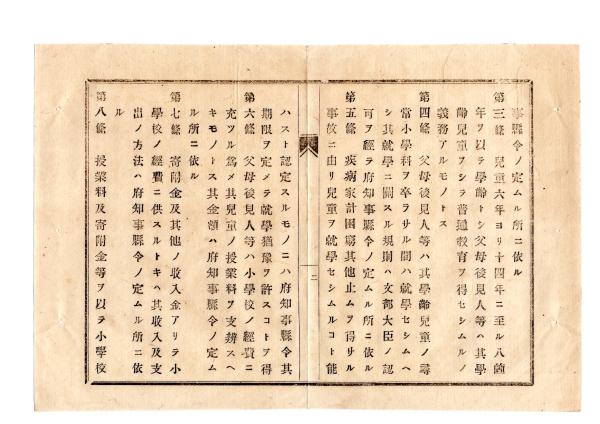 事縣令ノ定ムル所ニ依ル
第三條 兒童六年ヨリ十四年ニ至ル八箇
年ヲ以テ學齡トシ父母後見人等ハ其學
齡兒童ヲシテ普通教育ヲ得セシムルノ
義務アルモノトス
第四條 父母後見人等ハ其學齡兒童ノ尋
常小學科ヲ卒ラサル間ハ就學セシムヘ
シ其就學ニ關スル規則ハ文部大臣ノ認
可ヲ經テ府知事縣令ノ定ムル所ニ依ル
第五條 疾病家計困窮其他止ムヲ得サル
事故ニ由リ兒童ヲ就學セシムルコト能
二
ハスト認定スルモノニハ府知事縣令其
期限ヲ定メテ就學猶豫ヲ許スコトヲ得
第六條 父母後見人等ハ小學校ノ經費ニ
充ツル爲メ其兒童ノ授業料ヲ支辨スヘ
キモノトス其金額ハ府知事縣令ノ定ム
ル所ニ依ル
第七條 寄附金及其他ノ收入金アリテ小
學校ノ經費ニ供スルトキハ其收入及支
出ノ方法ハ府知事縣令ノ定ムル所ニ依
ル
第八條 授業料及寄附金等ヲ以テ小學校